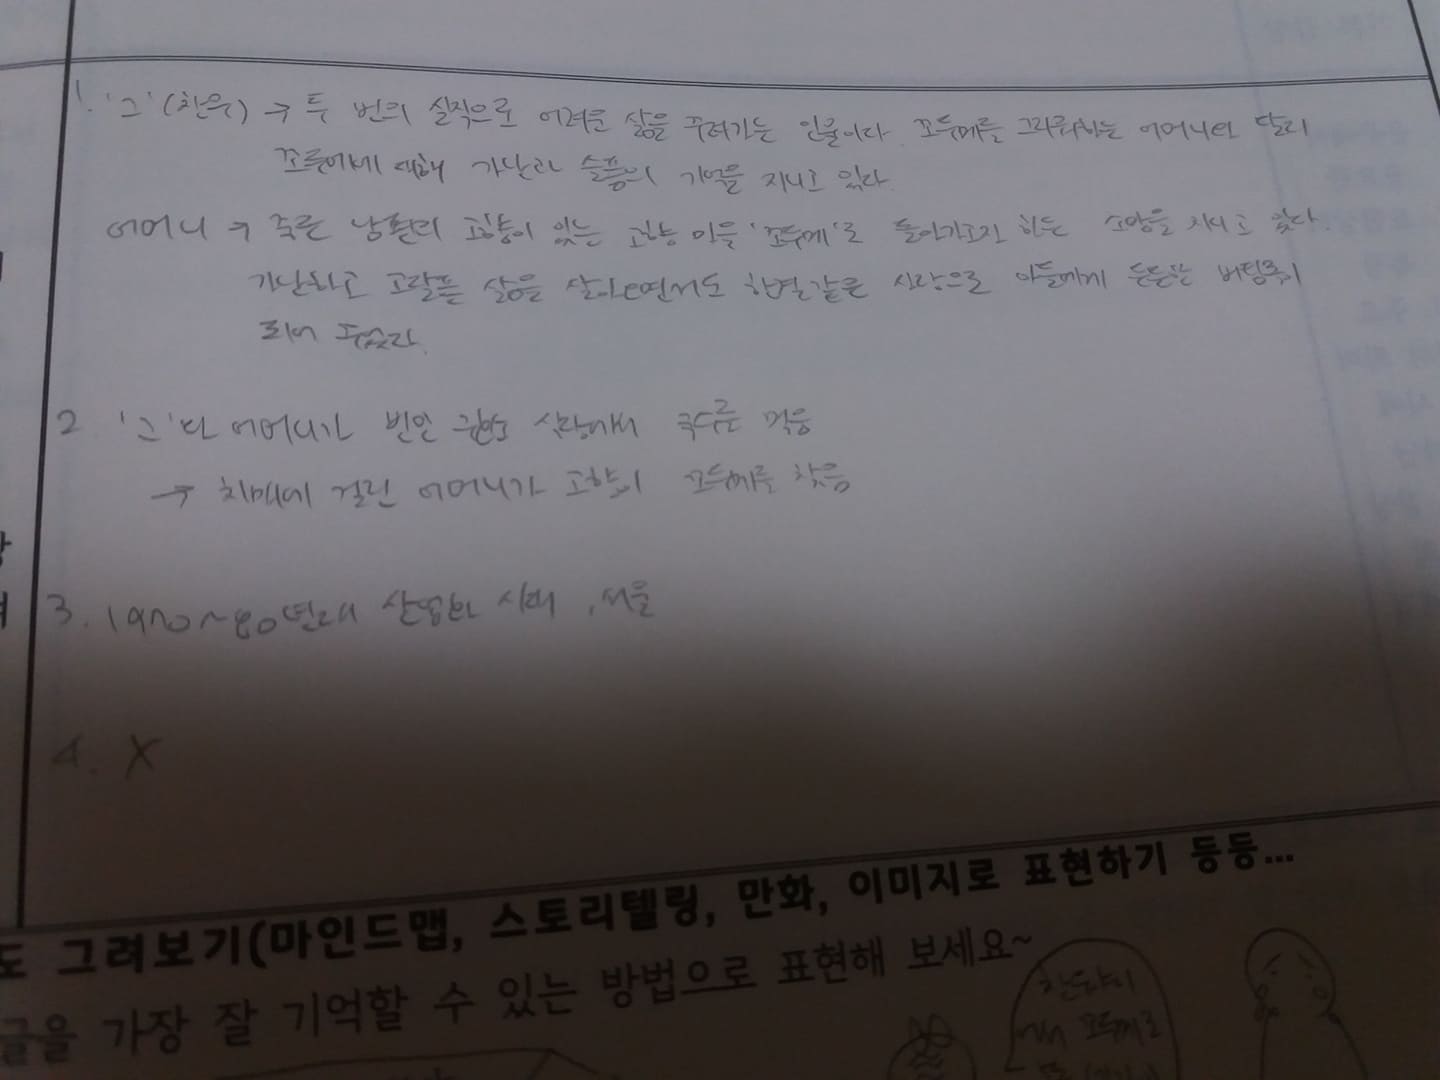 1. '그'(찬우) → 두 번의 실직으로 어려운 삶을 꾸려가는 인물이다. 꼬두메를 그리워하는 어머니와 달리
꼬두메에 대해 가난과 슬픔의 기억을 지니고 있다.
어머니 → 죽은 남편의 고향이 있는 고향 마을 '꼬두메'로 돌아가고자 하는 소망을 지니고 있다.
가난하고 고달픈 삶을 살아오면서도 한결같은 사랑으로 아들에게 든든한 버팀목이
되어 주었다.
2 '그'와 어머니가 식당에서 국수를 먹음
→ 치매에 걸린 어머니가 고향의 꼬두메를 찾음
3. 1970~80년대 산업화 시대, 서울
4. X
도 그려보기(마인드맵, 스토리텔링, 만화, 이미지로 표현하기 등등...
글을 가장 잘 기억할 수 있는 방법으로 표현해 보세요~
찬우야
꼬두메로